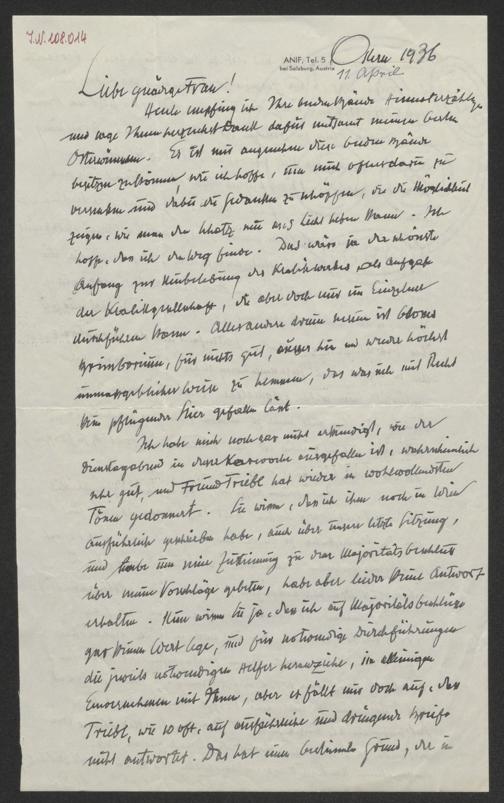 J.N. 108.014
ANIF, Tel. 5
bei Salzburg, Austria
Ostern 1936
11. April
Liebe gnädige Frau!
Heute empfing ich Ihre beiden Bände
und sage Ihnen herzlichst Dank dafür mitsamt meinen
Osterwünschen. Es ist mir angenehm diese beiden Bände
besitzen zu können, wie ich hoffe, um mich öfter darin zu
versenken und dabei die Gedanken zu schöpfen, die die Möglichkeit
zeigen, wie man den Schatz ans Licht heben kann. Ich
hoffe, dass ich den Weg finde. Das wäre ja der schönste
Anfang zur Neubelebung des Kralikwerkes als Aufgabe
der Kralikgesellschaft, die aber doch nur ein Einzelner
durchführen kann. Alles andere drum herum ist blosses
Brimborium, für nichts gut, ausser hin und wieder höchst
unmassgeblicher Weise zu hemmen, das was sich mit Recht
kein pflügender Stier gefallen lässt.
Ich habe mich noch gar nicht erkundigt, wie der
Dienstagabend in dieser Karwoche ausgefallen ist, wahrscheinlich
sehr gut, und Freund Triebl hat wieder in wohlwollendsten
Tönen gedonnert. Sie wissen, dass ich ihm noch in Wien
ausführlich geschrieben habe, auch über unsere letzte Sitzung,
und habe um seine Zustimmung zu dem Majoritätsbeschluss
über meine Vorschläge gebeten, habe aber leider keine Antwort
erhalten. Nun wissen Sie ja, dass ich auf Majoritätsbeschlüsse
gar keinen Wert lege, und für notwendige Durchführungen
die jeweils notwendigen Helfer heranziehe, im alleinigen
Einvernehmen mit Ihnen, aber es fällt mir doch auf, dass
Triebl, wie so oft, auf ausführliche und dringende Briefe
nicht antwortet. Das hat einen bestimmten Grund, der in